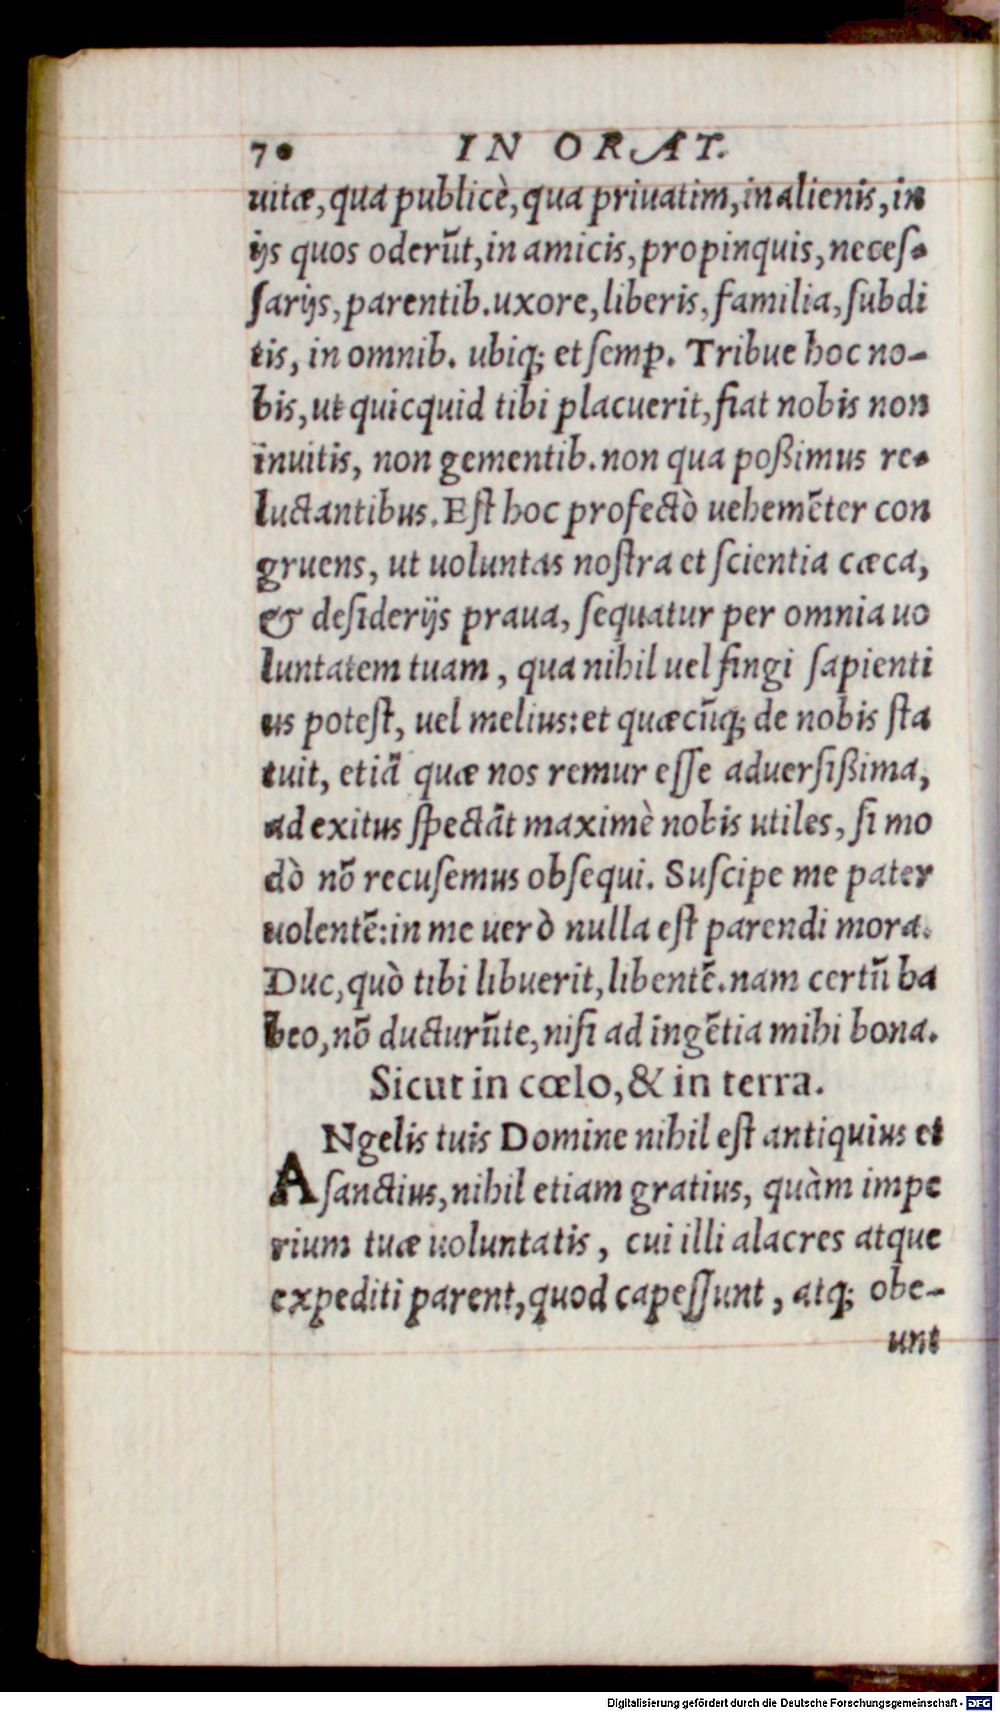 70 IN ORAT.
uitæ, qua publicè, qua priuatim, in alienis, in
ijs quos oderũt, in amicis, propinquis, neceſ-
ſarijs, parentib. uxore, liberis, familia, ſubdi
tis, in omnib. ubiq; et ſemꝑ. Tribue hoc no-
bis, ut quicquid tibi placuerit, fiat nobis non
inuitis, non gementib. non qua poßimus re-
luctantibus. Eſt hoc profectò uehemẽter con
gruens, ut uoluntas noſtra et ſcientia cæca,
& deſiderijs praua, ſequatur per omnia uo
luntatem tuam, qua nihil uel fingi ſapienti
us poteſt, uel melius: et quæcũq; de nobis ſta
tuit, etiã quæ nos remur eſſe aduerſißima,
ad exitus ſpectãt maximè nobis utiles, ſi mo
dò nõ recuſemus obſequi. Suſcipe me pater
uolentẽ: in me uerò nulla eſt parendi mora.
Duc, quò tibi libuerit, libentẽ. nam certũ ha
beo, nõ ducturũ te, niſi ad ingẽtia mihi bona.
Sicut in cœlo, & in terra.
ANgelis tuis Domine nihil eſt antiquius et
ſanctius, nihil etiam gratius, quàm impe
rium tuæ uoluntatis, cui illi alacres atque
expediti parent, quod capeſſunt, atq; obe-
unt
Digitalisierung gefördert durch die Deutsche Forschungsgemeinschaft - DFG